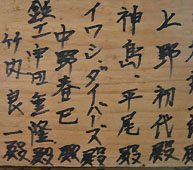 上野初代殿
神島、平尾殿
イワシ、ダイバーズ殿
中野春巳殿
鉄工津田重隆殿
竹内良一殿